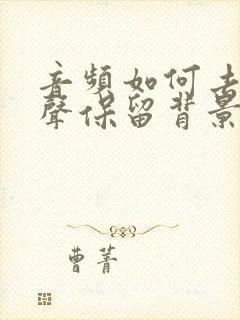 音頻如何去
聲保留背景
曹菁